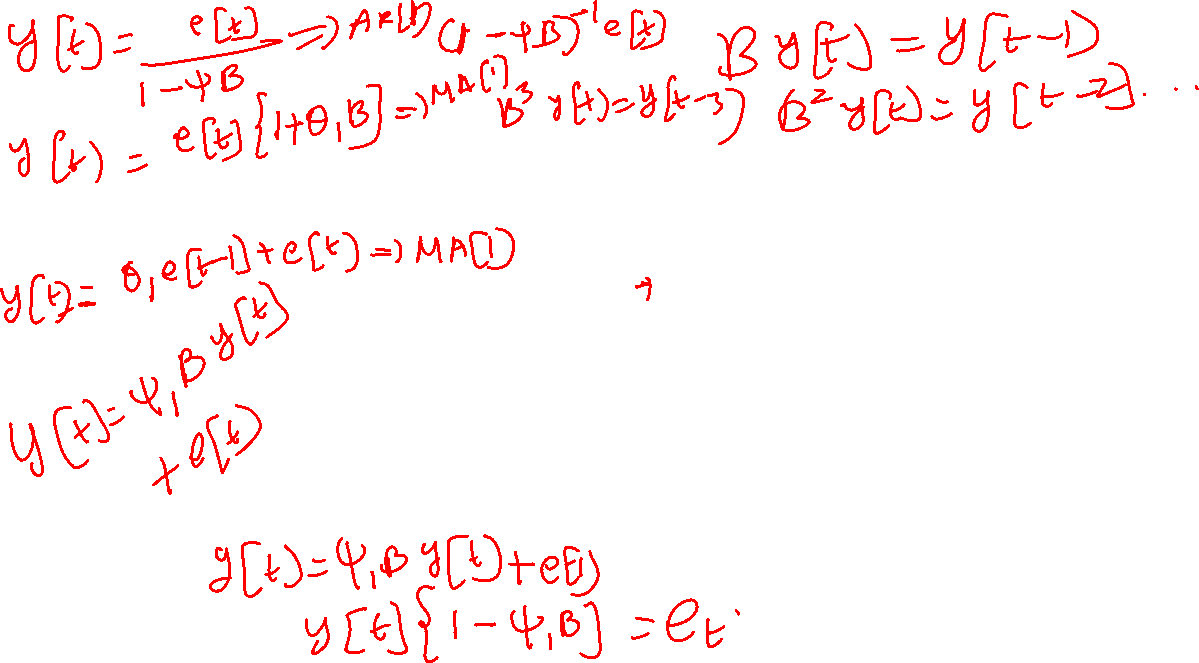 y[t] = e[t] / 1-ψB => AR(1) (1-ψB)⁻¹ e[t] B y[t] = y[t-1]
y[t] = e[t] {1+θ₁B] => MA[1] B³ y[t) = y[t-3] B² y[t] = y[t-2]...
y[t] = θ₁e[t-1] + e[t] => MA[1]
y[t] = ψ₁B y[t]
+ e[t]
y[t] = ψ₁B y[t] + e[t]
y[t] {1-ψ₁B] = eₜ.